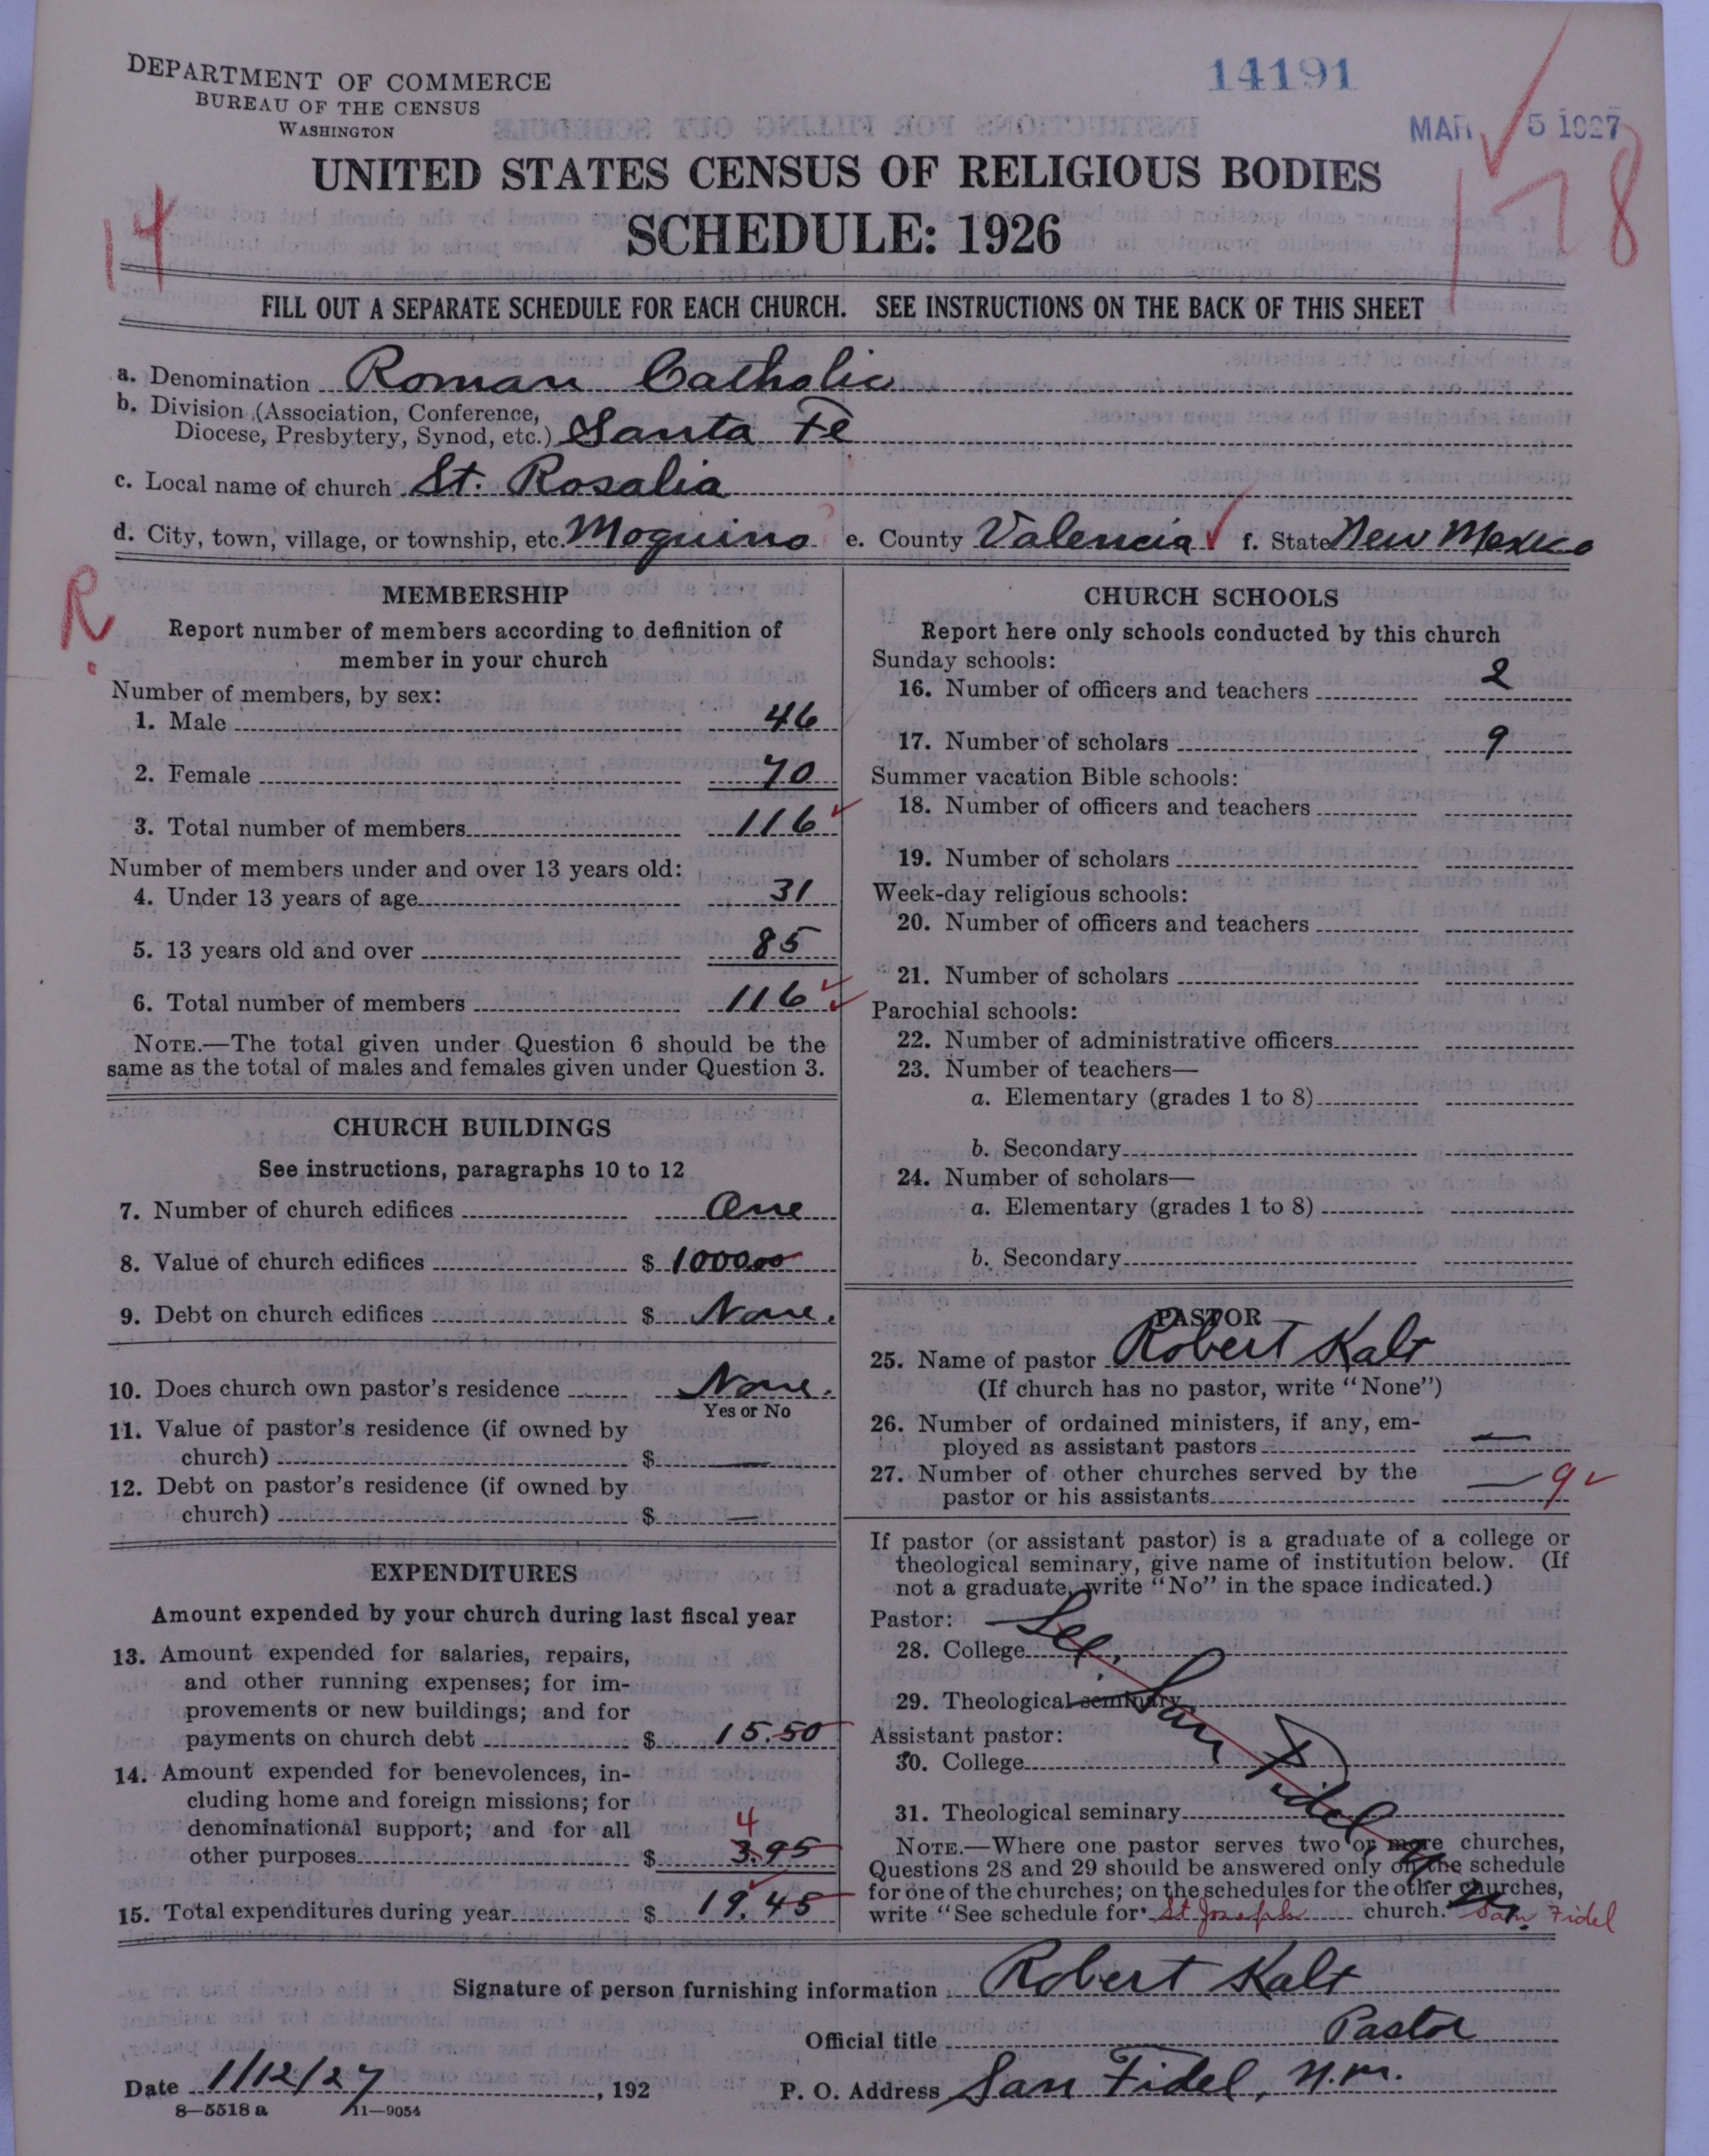 DEPARTMENT OF COMMERCE
BUREAU OF THE CENSUS
WASHINGTON
14191
MAR 5 1927
UNITED STATES CENSUS OF RELIGIOUS BODIES
SCHEDULE: 1926
14
178
FILL OUT A SEPARATE SCHEDULE FOR EACH CHURCH. SEE INSTRUCTIONS ON THE BACK OF THIS SHEET
a. Denomination Roman Catholic
b. Division (Association, Conference,
Diocese, Presbytery, Synod, etc.) Santa Fe
c. Local name of church St. Rosalia
d. City, town, village, or township, etc. Moquino e. County Valencia f. State New Mexico
R
MEMBERSHIP
Report number of members according to definition of
member in your church
Number of members, by sex:
1. Male 46
2. Female 70
3. Total number of members 116
Number of members under and over 13 years old:
4. Under 13 years of age 31
5. 13 years old and over 85
6. Total number of members 116
NOTE.—The total given under Question 6 should be the
same as the total of males and females given under Question 3.
CHURCH BUILDINGS
See instructions, paragraphs 10 to 12
7. Number of church edifices One
8. Value of church edifices $ 1000.00
9. Debt on church edifices $ None.
10. Does church own pastor's residence None.
Yes or No
11. Value of pastor's residence (if owned by
church) $ —
12. Debt on pastor's residence (if owned by
church) $ —
EXPENDITURES
Amount expended by your church during last fiscal year
13. Amount expended for salaries, repairs,
and other running expenses; for im-
provements or new buildings; and for
payments on church debt $ 15.50
14. Amount expended for benevolences, in-
cluding home and foreign missions; for
denominational support; and for all
4
other purposes $ 3.95
15. Total expenditures during year $ 19.45
CHURCH SCHOOLS
Report here only schools conducted by this church
Sunday schools:
16. Number of officers and teachers 2
17. Number of scholars 9
Summer vacation Bible schools:
18. Number of officers and teachers
19. Number of scholars
Week-day religious schools:
20. Number of officers and teachers
21. Number of scholars
Parochial schools:
22. Number of administrative officers
23. Number of teachers—
a. Elementary (grades 1 to 8)
b. Secondary
24. Number of scholars—
a. Elementary (grades 1 to 8)
b. Secondary
PASTOR
25. Name of pastor Robert Kalt
(If church has no pastor, write "None")
26. Number of ordained ministers, if any, em-
ployed as assistant pastors —
27. Number of other churches served by the
pastor or his assistants — 9
If pastor (or assistant pastor) is a graduate of a college or
theological seminary, give name of institution below. (If
not a graduate, write "No" in the space indicated.)
Pastor:
28. College
29. Theological seminary
Assistant pastor:
30. College
31. Theological seminary
See San Fidel
NOTE.—Where one pastor serves two or more churches,
Questions 28 and 29 should be answered only on the schedule
for one of the churches; on the schedules for the other churches,
write "See schedule for St Joseph church." San Fidel
Signature of person furnishing information Robert Kalt
Official title Pastor
Date 1/12/27, 192 P. O. Address San Fidel, N.M.
8—5518 a 11—9054